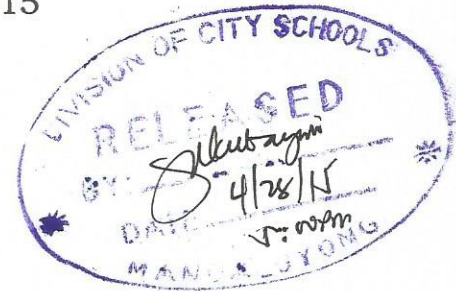 15
DIVISION OF CITY SCHOOLS
RELEASED
BY:
4/28/15
DATE
MANDALUYONG